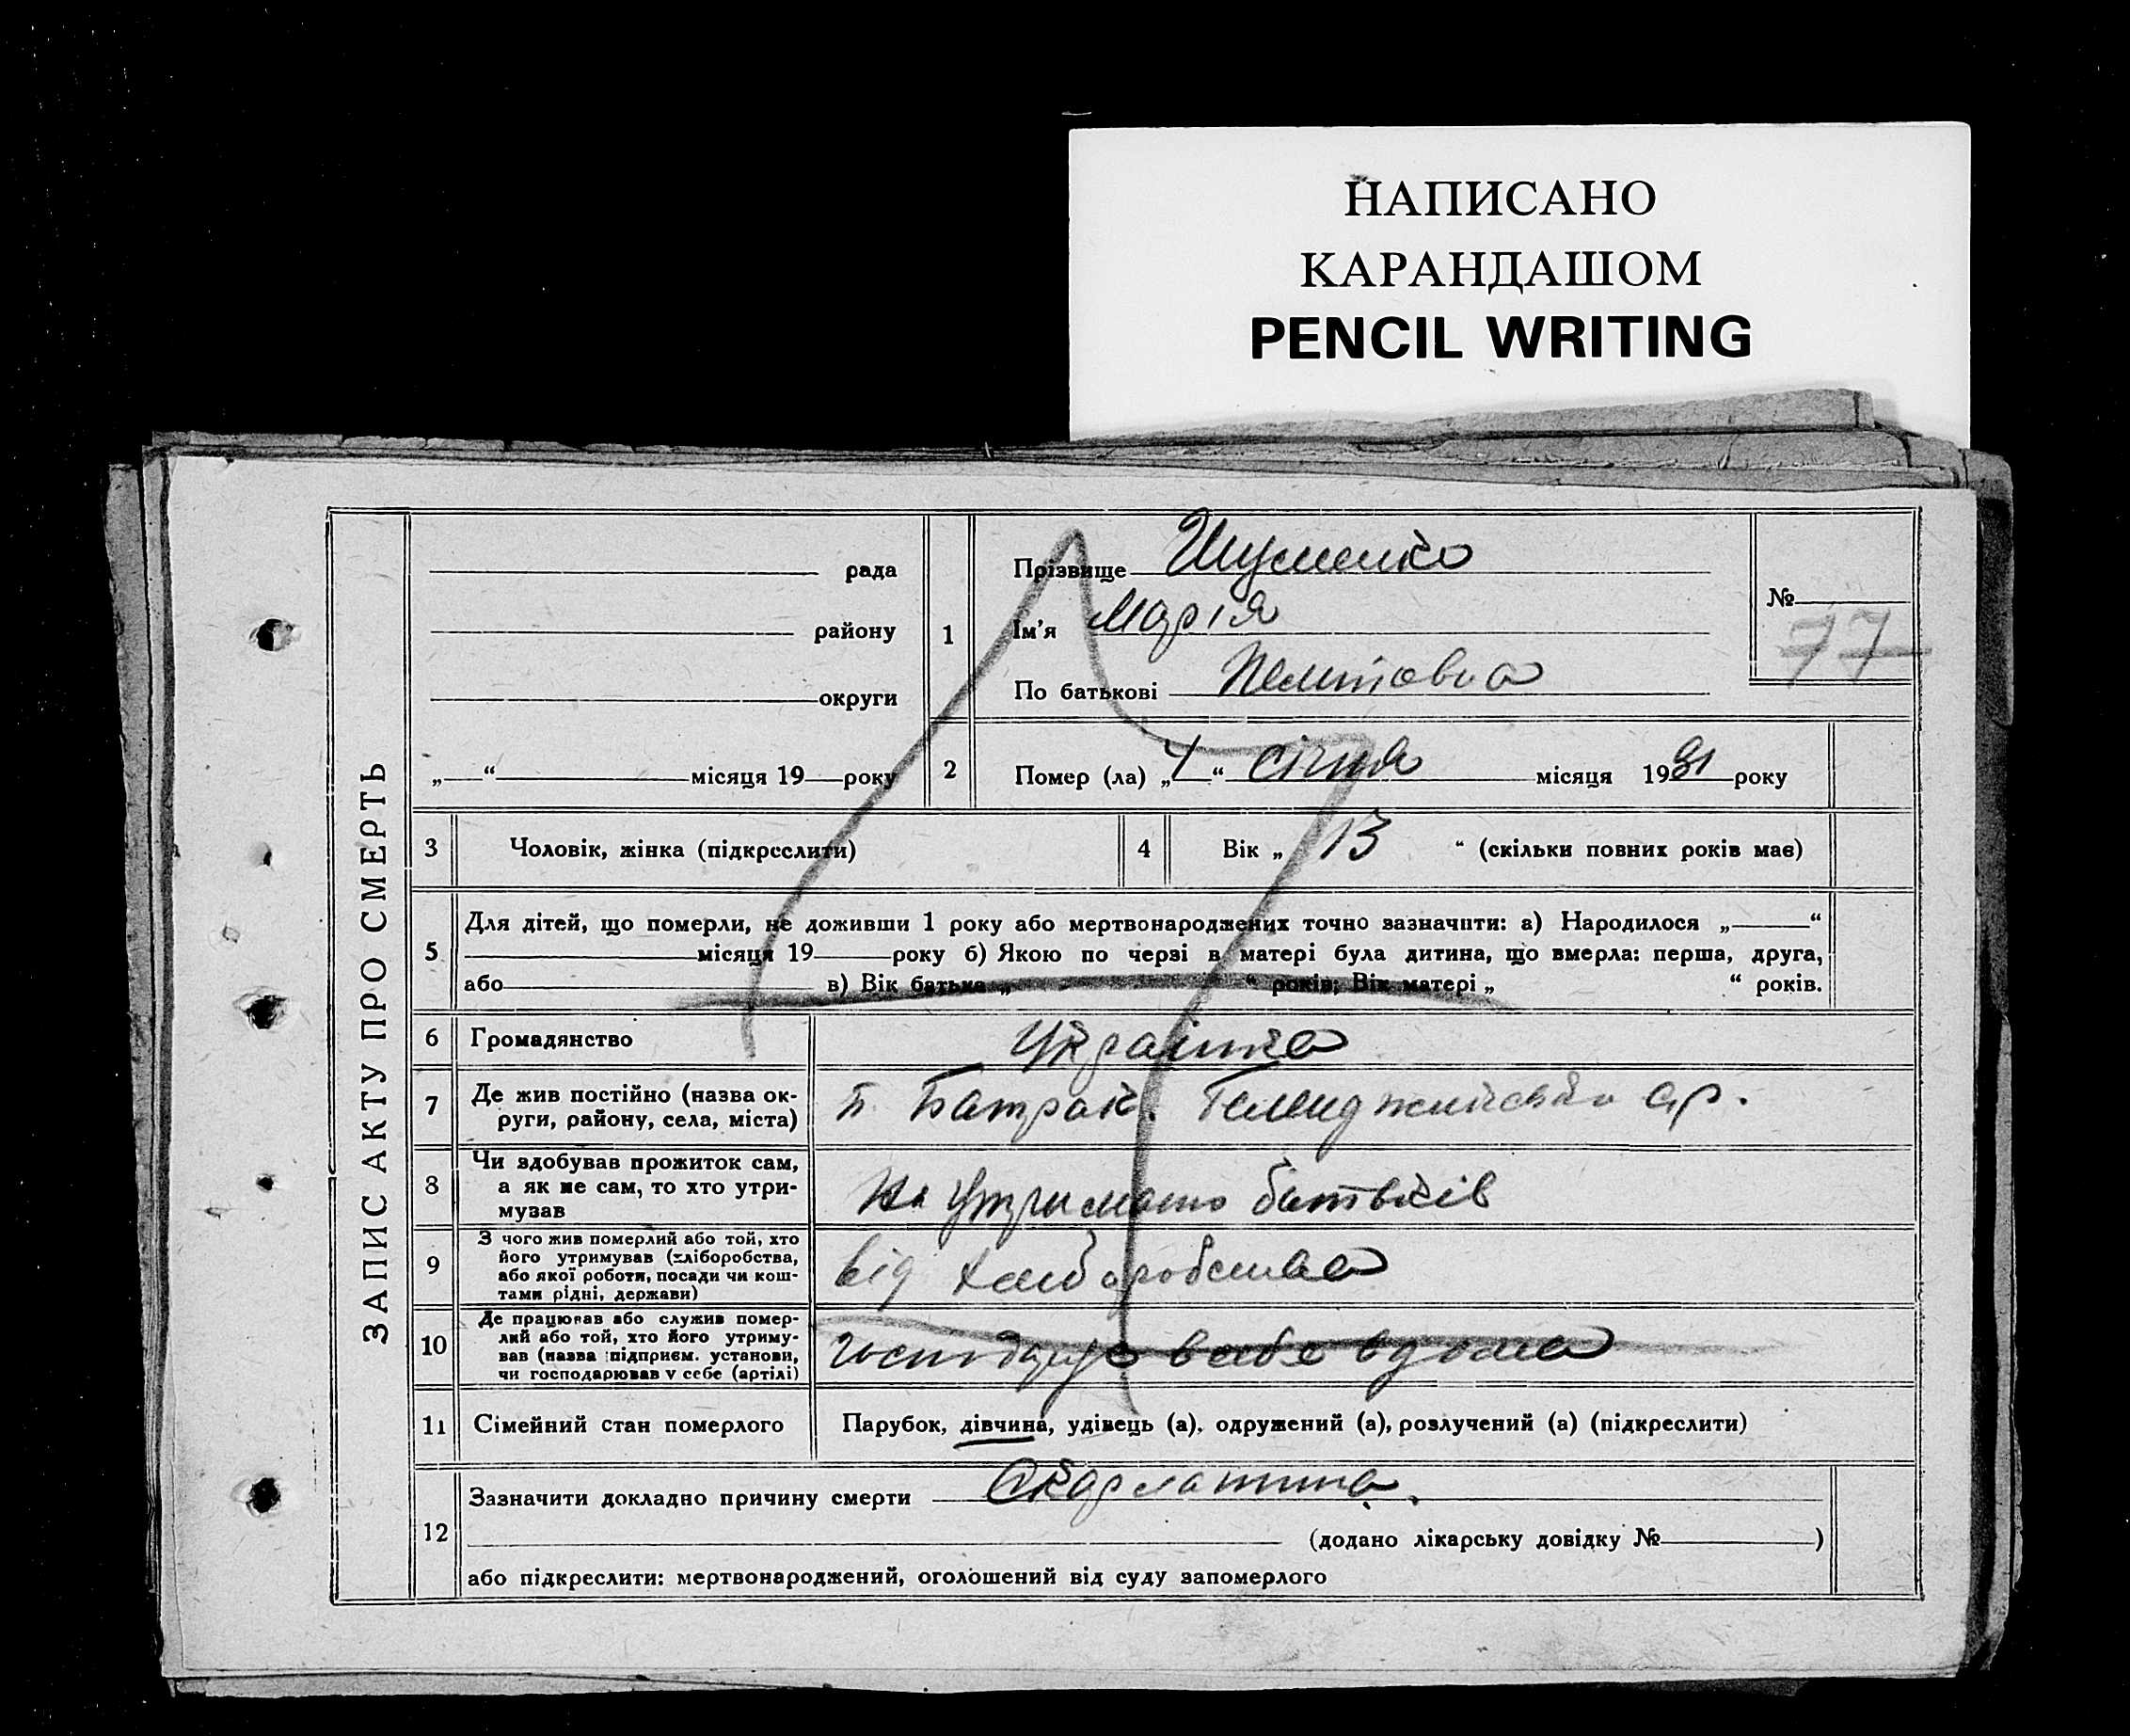 НАПИСАНО
КАРАНДАШОМ
PENCIL WRITING
ЗАПИС АКТУ ПРО СМЕРТЬ
рада
району
округи
„ “ місяця 19 року
1
Прізвище Шуменко
Ім'я Марія
По батькові
№
77
2
Помер (ла) „ “ січня місяця 1931 року
3
Чоловік, жінка (підкреслити)
4
Вік „ 13 “ (скільки повних років має)
5
Для дітей, що померли, не доживши 1 року або мертвонароджених точно зазначити: а) Народилося „ “
місяця 19 року б) Якою по черзі в матері була дитина, що вмерла: перша, друга,
або в) Вік батька „ “ років; Вік матері „ “ років.
6
Громадянство
Українка
7
Де жив постійно (назва ок-
руги, району, села, міста)
Батрак.
8
Чи здобував прожиток сам,
а як не сам, то хто утри-
мував
На утримано батьків
9
З чого жив померлий або той, хто
його утримував (хліборобства,
або якої роботи, посади чи кош-
тами рідні, держави)
від хліборобства
10
Де працював або служив помер-
лий або той, хто його утриму-
вав (назва підприєм. установи,
чи господарював у себе (артілі)
в себе вдома
11
Сімейний стан померлого
Парубок, дівчина, удівець (а), одружений (а), розлучений (а) (підкреслити)
12
Зазначити докладно причину смерти Скарлатина.
(додано лікарську довідку № )
або підкреслити: мертвонароджений, оголошений від суду запомерлого